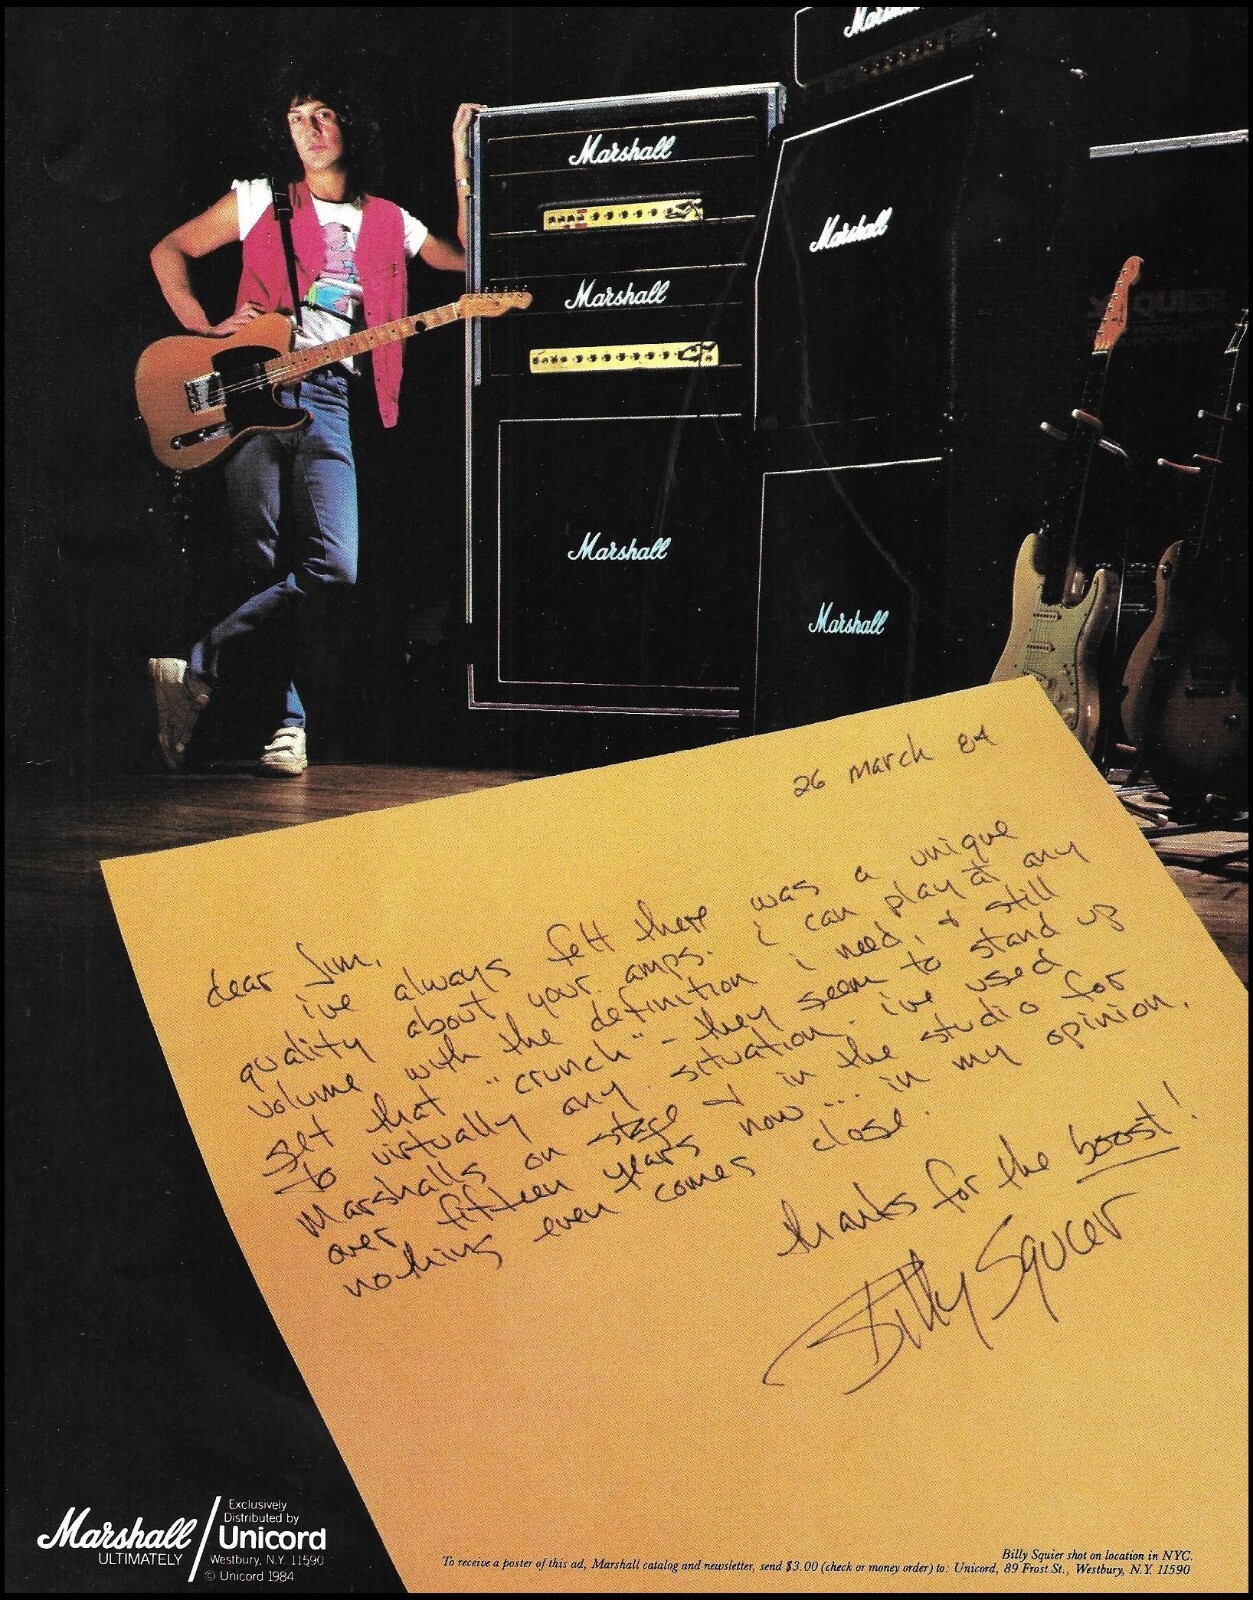 Marshall
Marshall
Marshall
Marshall
Marshall
Marshall
SQUIER
PRODUCTION
NEW YORK
26 march 84
dear Jim,
i've always felt there was a unique
quality about your amps. i can play at any
volume with the definition i need, & still
get that "crunch" - they seem to stand up
to virtually any situation. i've used
Marshalls on stage & in the studio for
over fifteen years now... in my opinion,
nothing even comes close.
thanks for the boost!
Billy Squier
Marshall
ULTIMATELY
Exclusively
Distributed by
Unicord
Westbury, N.Y. 11590
© Unicord 1984
Billy Squier shot on location in NYC.
To receive a poster of this ad, Marshall catalog and newsletter, send $3.00 (check or money order) to: Unicord, 89 Frost St., Westbury, N.Y. 11590